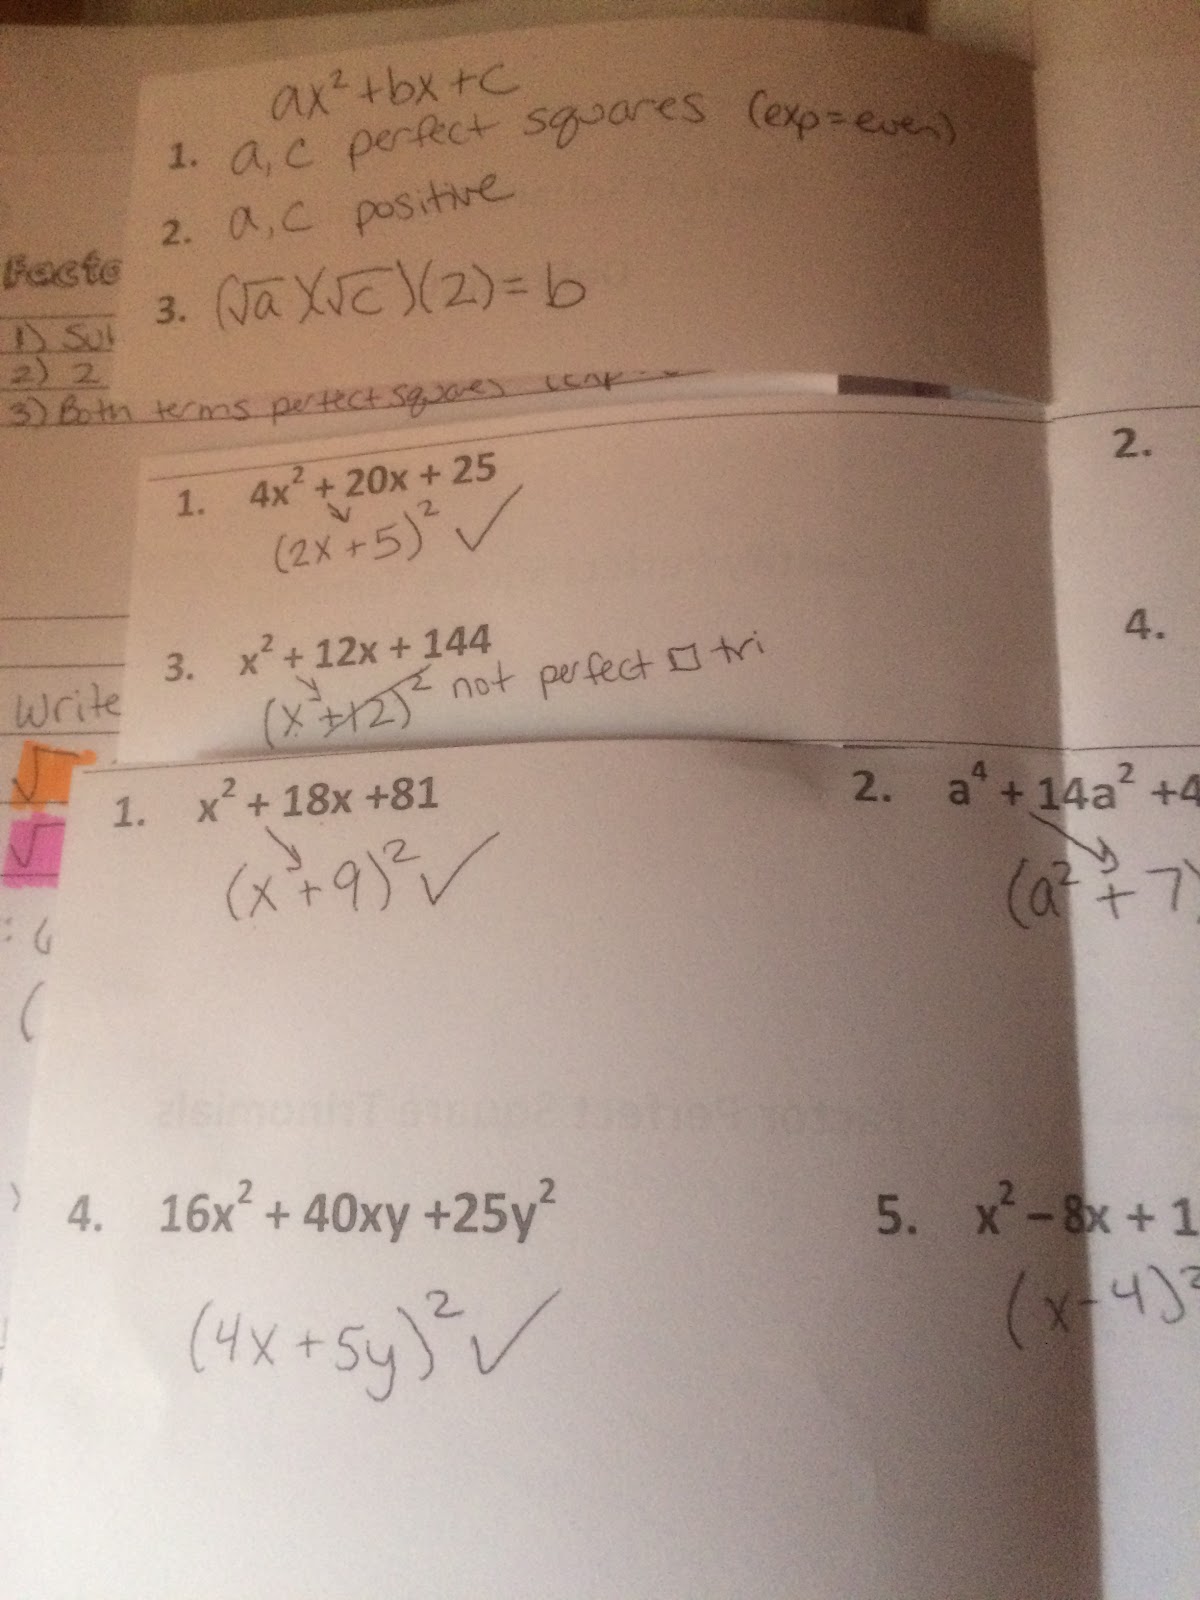 ax² + bx + c
1. a, c perfect squares (exp = even)
2. a, c positive
3. (√a)(√c)(2) = b
Facto
1) Sul
2) 2
3) Both terms perfect squares
1. 4x² + 20x + 25
(2x + 5)² ✓
2.
3. x² + 12x + 144
(x + 12)² not perfect □ tri
4.
Write
√
√
1. x² + 18x +81
(x + 9)² ✓
2. a⁴ + 14a² +4
(a² + 7)
Factor Perfect Square Trinomials
4. 16x² + 40xy +25y²
(4x + 5y)² ✓
5. x² – 8x + 1
(x - 4)²